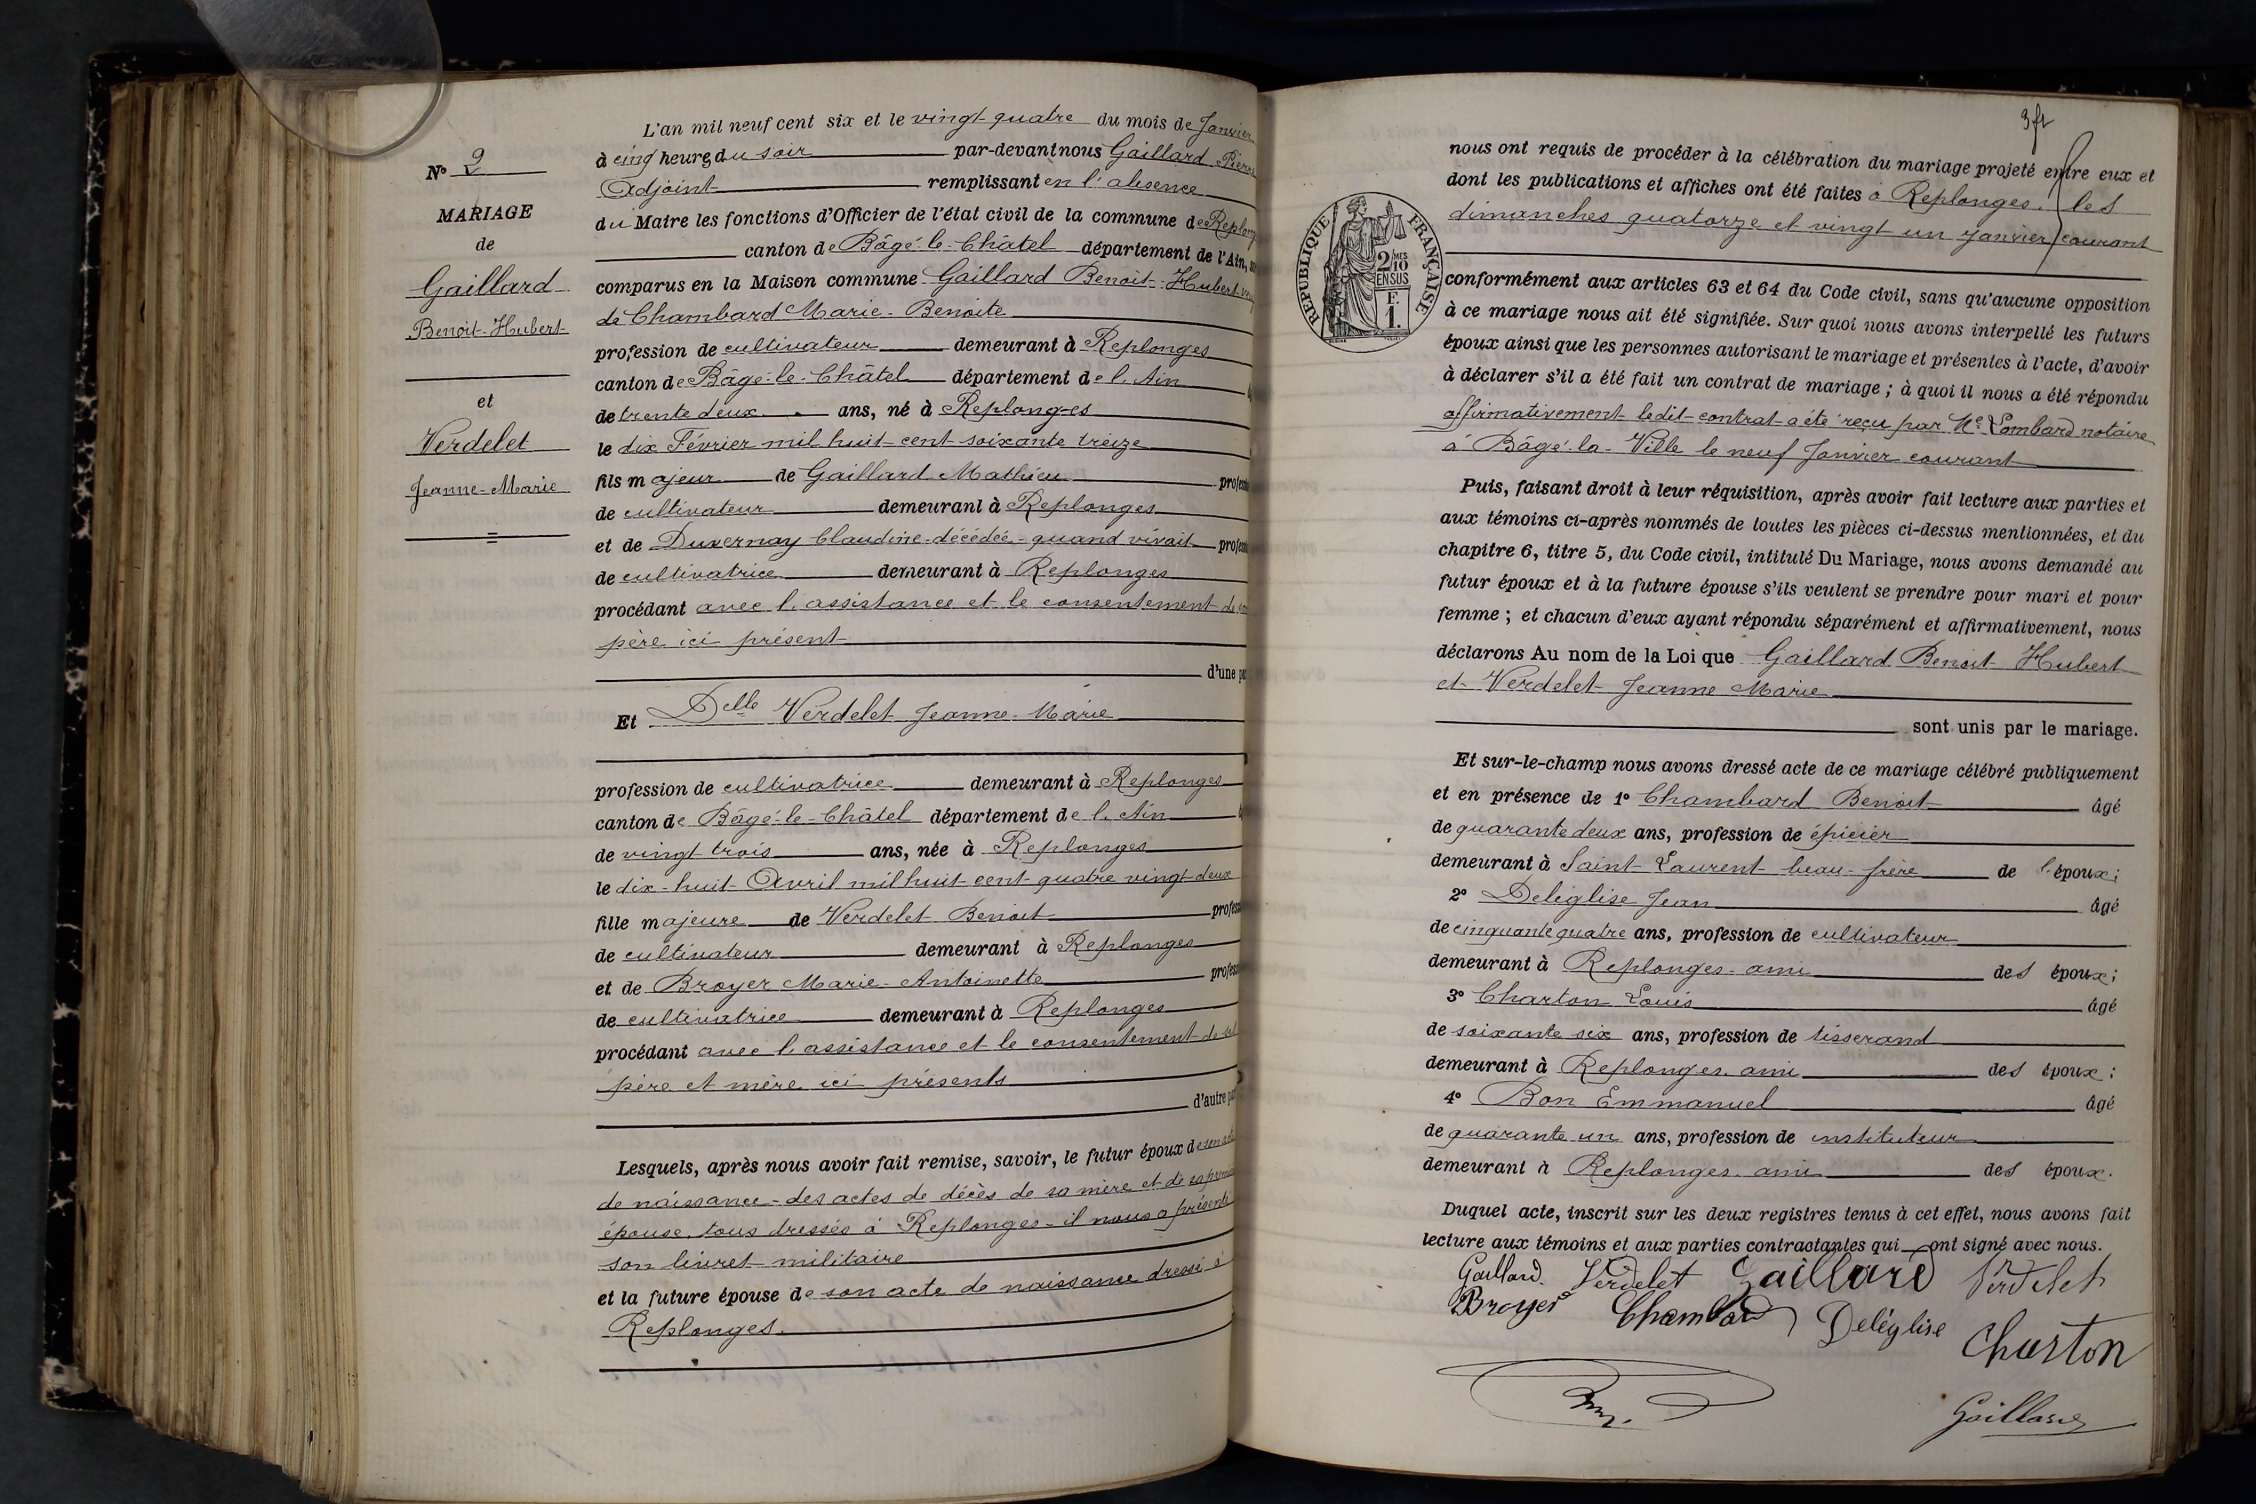 N° 2
MARIAGE
de
Gaillard
Benoit-Hubert
et
Verdelet
Jeanne-Marie
L'an mil neuf cent six et le vingt quatre du mois de Janvier
à cinq heures du soir par-devant nous Gaillard Pierre
Adjoint remplissant en l'absence
du Maire les fonctions d'Officier de l'état civil de la commune de
canton de Bâgé-le-Châtel département de l'Ain,
comparus en la Maison commune Gaillard Benoit-Hubert
de Chambard Marie-Benoite
profession de cultivateur demeurant à Replonges
canton de Bâgé-le-Châtel département de l'Ain
de trente deux ans, né à Replonges
le dix Février mil huit cent soixante treize
fils majeur de Gaillard Mathieu
de cultivateur demeurant à Replonges
et de Duvernay Claudine-décédée-quand vivait
de cultivatrice demeurant à Replonges
procédant avec l'assistance et le consentement de
père ici présent
d'une
Et Delle Verdelet Jeanne-Marie
profession de cultivatrice demeurant à Replonges
canton de Bâgé-le-Châtel département de l'Ain
de vingt trois ans, née à Replonges
le dix-huit Avril mil huit cent quatre vingt deux
fille majeure de Verdelet Benoit
de cultivateur demeurant à Replonges
et de Broyer Marie-Antoinette
de cultivatrice demeurant à Replonges
procédant avec l'assistance et le consentement de
père et mère ici présents
d'autre
Lesquels, après nous avoir fait remise, savoir, le futur époux de son
de naissance-des actes de décès de sa mère et de sa
épouse, tous dressés à Replonges-il nous a présenté
son livret militaire
et la future épouse de son acte de naissance dressé à
Replonges.
nous ont requis de procéder à la célébration du mariage projeté entre eux et
dont les publications et affiches ont été faites à Replonges. les
dimanches quatorze et vingt un janvier courant
RÉPUBLIQUE FRANÇAISE
2 MES
10
EN SUS
F.
1.
conformément aux articles 63 et 64 du Code civil, sans qu'aucune opposition
à ce mariage nous ait été signifiée. Sur quoi nous avons interpellé les futurs
époux ainsi que les personnes autorisant le mariage et présentes à l'acte, d'avoir
à déclarer s'il a été fait un contrat de mariage ; à quoi il nous a été répondu
affirmativement ledit contrat a été reçu par Me Lombard notaire
à Bâgé-la-Ville le neuf Janvier courant
Puis, faisant droit à leur réquisition, après avoir fait lecture aux parties et
aux témoins ci-après nommés de toutes les pièces ci-dessus mentionnées, et du
chapitre 6, titre 5, du Code civil, intitulé Du Mariage, nous avons demandé au
futur époux et à la future épouse s'ils veulent se prendre pour mari et pour
femme ; et chacun d'eux ayant répondu séparément et affirmativement, nous
déclarons Au nom de la Loi que Gaillard Benoit Hubert
et Verdelet Jeanne Marie
sont unis par le mariage.
Et sur-le-champ nous avons dressé acte de ce mariage célébré publiquement
et en présence de 1° Chambard Benoit âgé
de quarante deux ans, profession de épicier
demeurant à Saint Laurent beau-frère de l'époux;
2° Deléglise Jean âgé
de cinquante quatre ans, profession de cultivateur
demeurant à Replonges-ami des époux;
3° Charton Louis âgé
de soixante six ans, profession de tisserand
demeurant à Replonges. ami des époux;
4° Bon Emmanuel âgé
de quarante un ans, profession de instituteur
demeurant à Replonges. ami des époux.
Duquel acte, inscrit sur les deux registres tenus à cet effet, nous avons fait
lecture aux témoins et aux parties contractantes qui ont signé avec nous.
Gaillard. Verdelet Gaillard Verdelet
Broyer Chambard Deléglise Charton
Gaillard